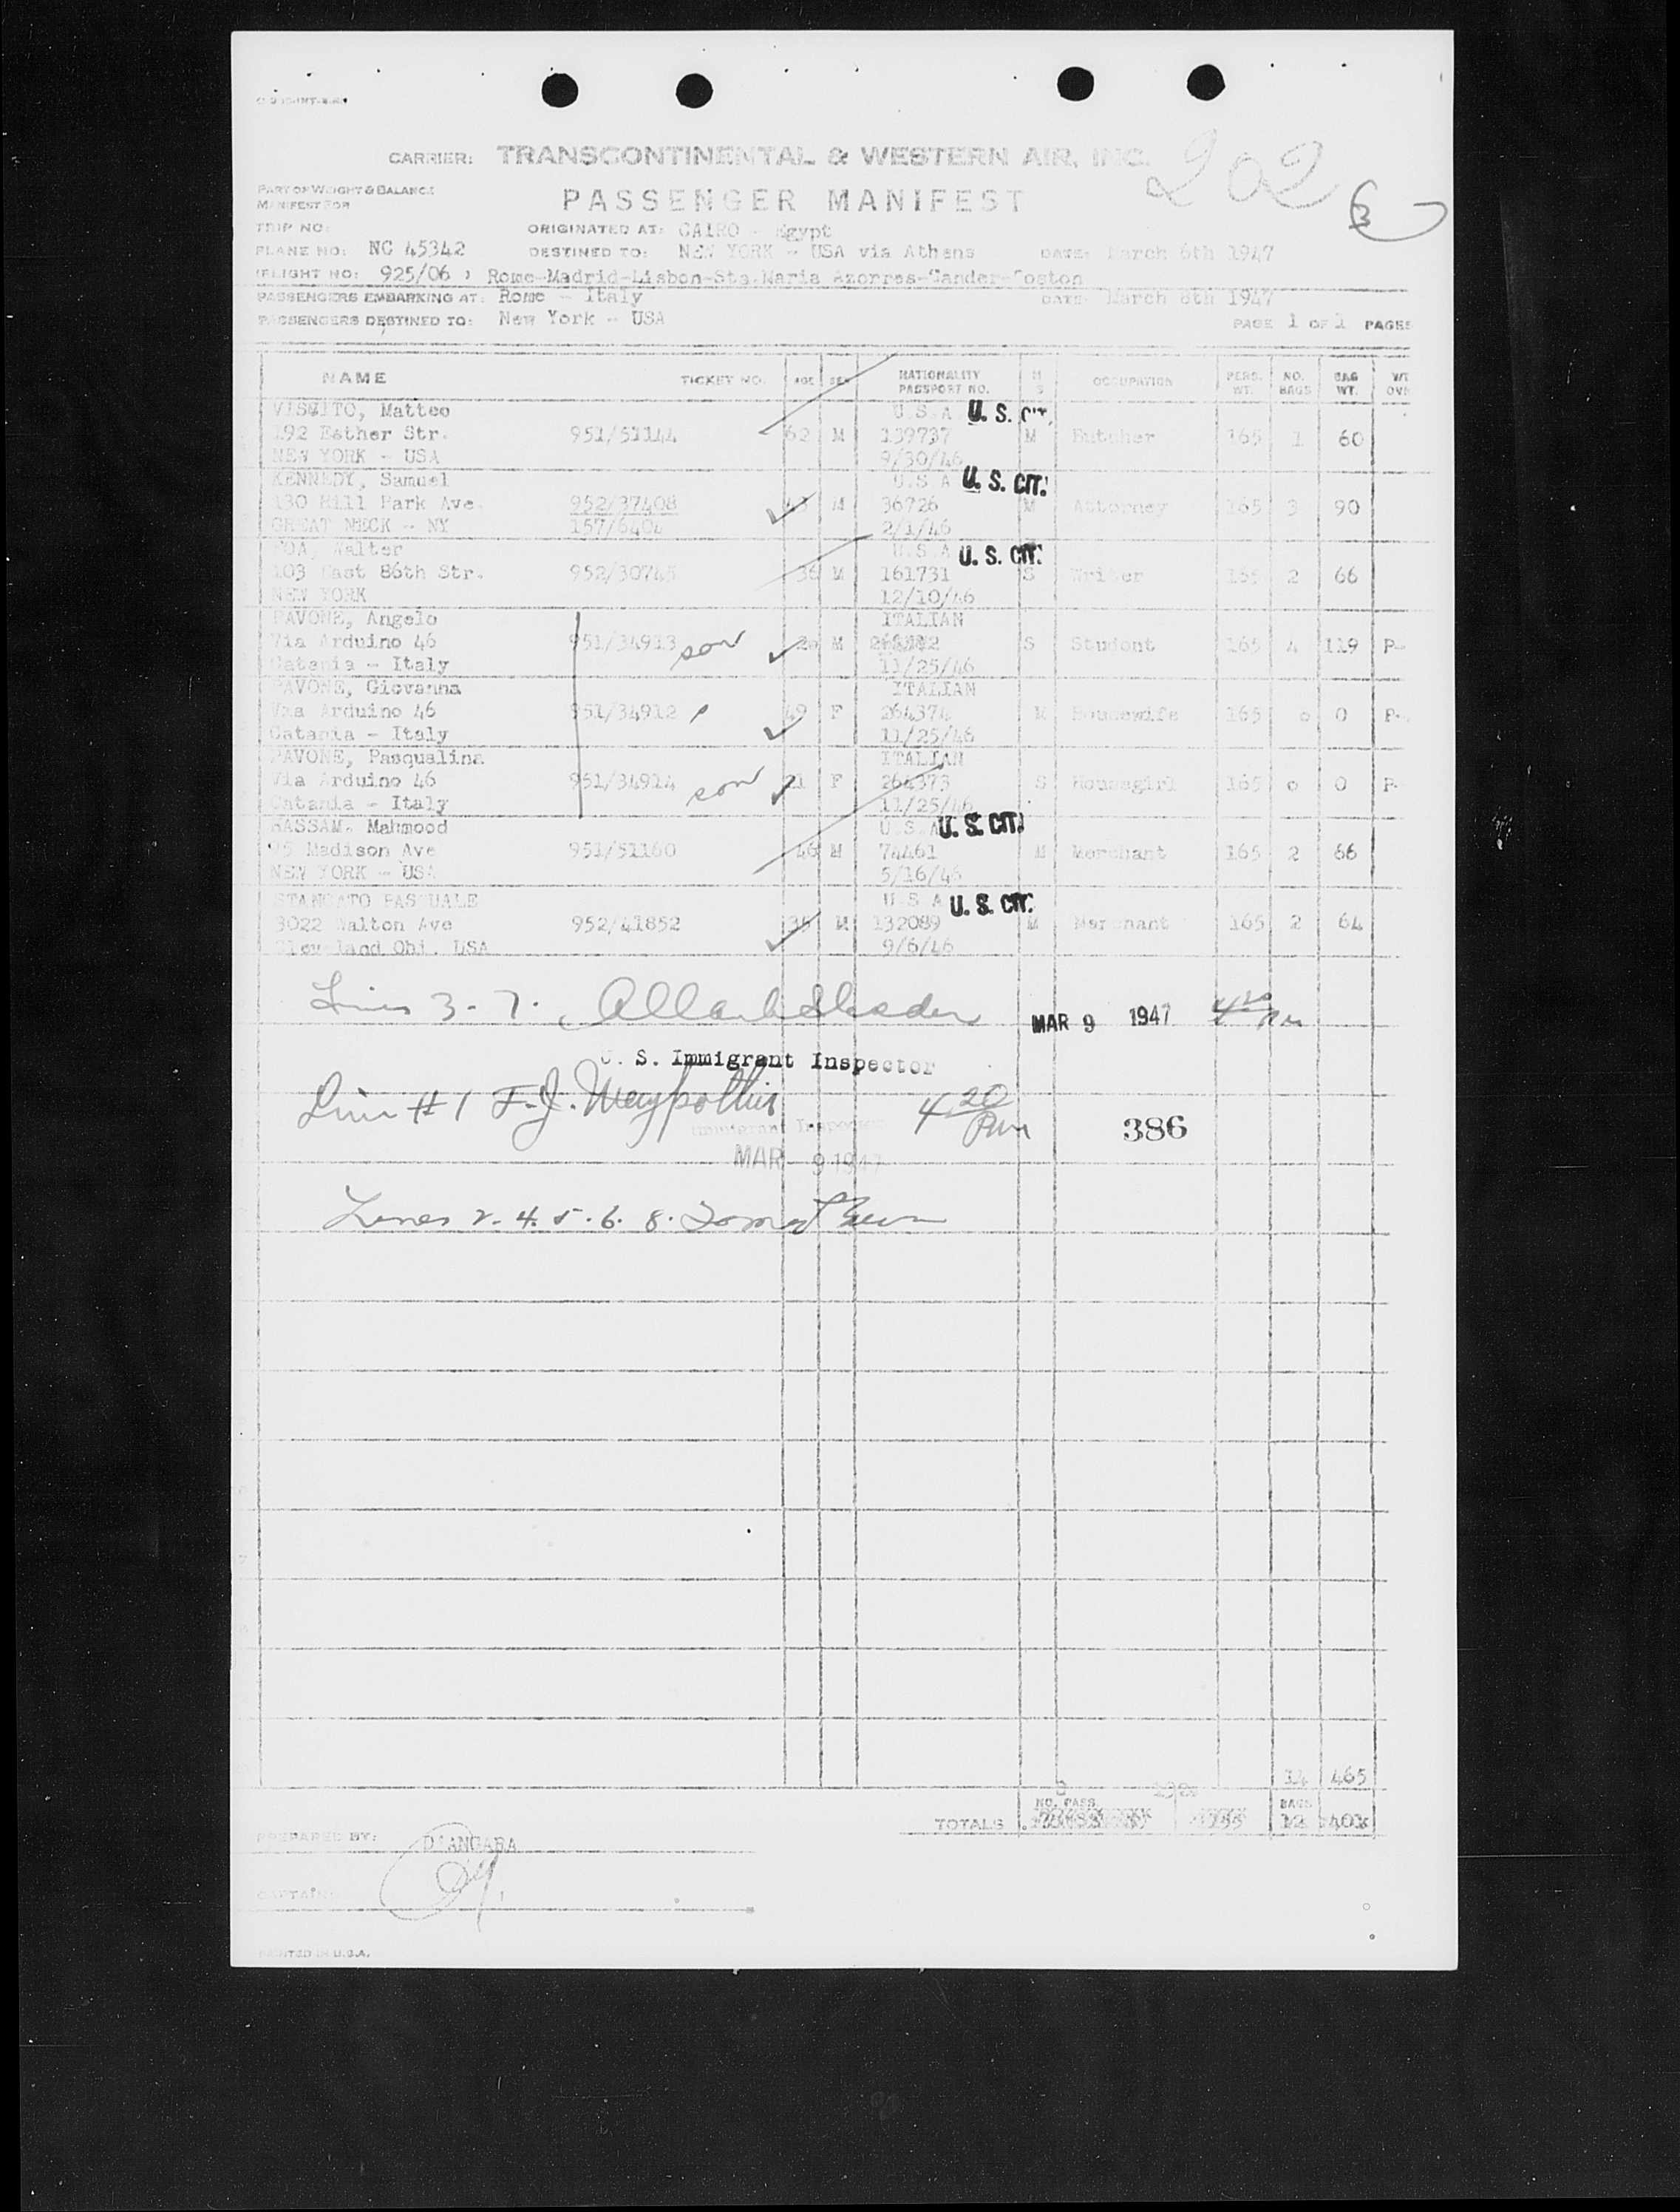 CARRIER: TRANSCONTINENTAL & WESTERN AIR, INC. 202
PART OF WEIGHT & BALANCE
MANIFEST FOR
PASSENGER MANIFEST
TRIP NO:
ORIGINATED AT: CAIRO - Egypt
PLANE NO: NC 45342
DESTINED TO: NEW YORK - USA via Athens
DATE: March 6th 1947
FLIGHT NO: 925/06 , Rome-Madrid-Lisbon-Sta.Maria Azorres-Gander-Boston
PASSENGERS EMBARKING AT: Rome - Italy
DATE: March 8th 1947
PASSENGERS DESTINED TO: New York - USA
PAGE 1 OF 1 PAGES
NAME TICKET NO. AGE SEX NATIONALITY PASSPORT NO. M S OCCUPATION PERS. WT. NO. BAGS BAG WT.
Matteo U S A U. S. CIT.
192 Esther Str. 951/51144 62 M 139737 M Butcher 165 1 60
NEW YORK - USA 9/30/46
KENNEDY, Samuel U.S A U. S. CIT.
130 Hill Park Ave. 952/37408 M 36726 M Attorney 165 3 90
GREAT NECK - NY 2/1/46
Walter U.S A U. S. CIT.
103 East 86th Str. 36 M 161731 S Writer 165 2 66
NEW YORK 12/10/46
PAVONE, Angelo ITALIAN
Via Arduino 46 951/34913 son 20 M S Student 165 4 119 P-
Catania - Italy 11/25/46
PAVONE, Giovanna ITALIAN
Via Arduino 46 951/34912 49 F 264374 M Housewife 165 0 0 P-
Catania - Italy 11/25/46
PAVONE, Pasqualina ITALIAN
Via Arduino 46 951/34914 son 21 F 264373 S Housegirl 165 0 0 P-
Catania - Italy 11/25/46
HASSAM, Mahmood U S A U. S. CIT.
Madison Ave 951/51160 46 M 74461 M Merchant 165 2 66
NEW YORK - USA 5/16/46
PASQUALE U S A U. S. CIT.
3022 Walton Ave 952/41852 M 132089 M Merchant 165 2 64
Cleveland Ohi. USA 9/6/46
Lines 3-7.
MAR 9 1947 4 20 Pm
U. S. Immigrant Inspector
Line #1 F.J.
4 20 Pm
386
Immigrant Inspector
MAR 9 1947
Lines 2. 4. 5. 6. 8.
14 465
8
TOTALS NO. PASS. BAGS 12
PREPARED BY: D'ANGARA
CAPTAIN:
PRINTED IN U.S.A.